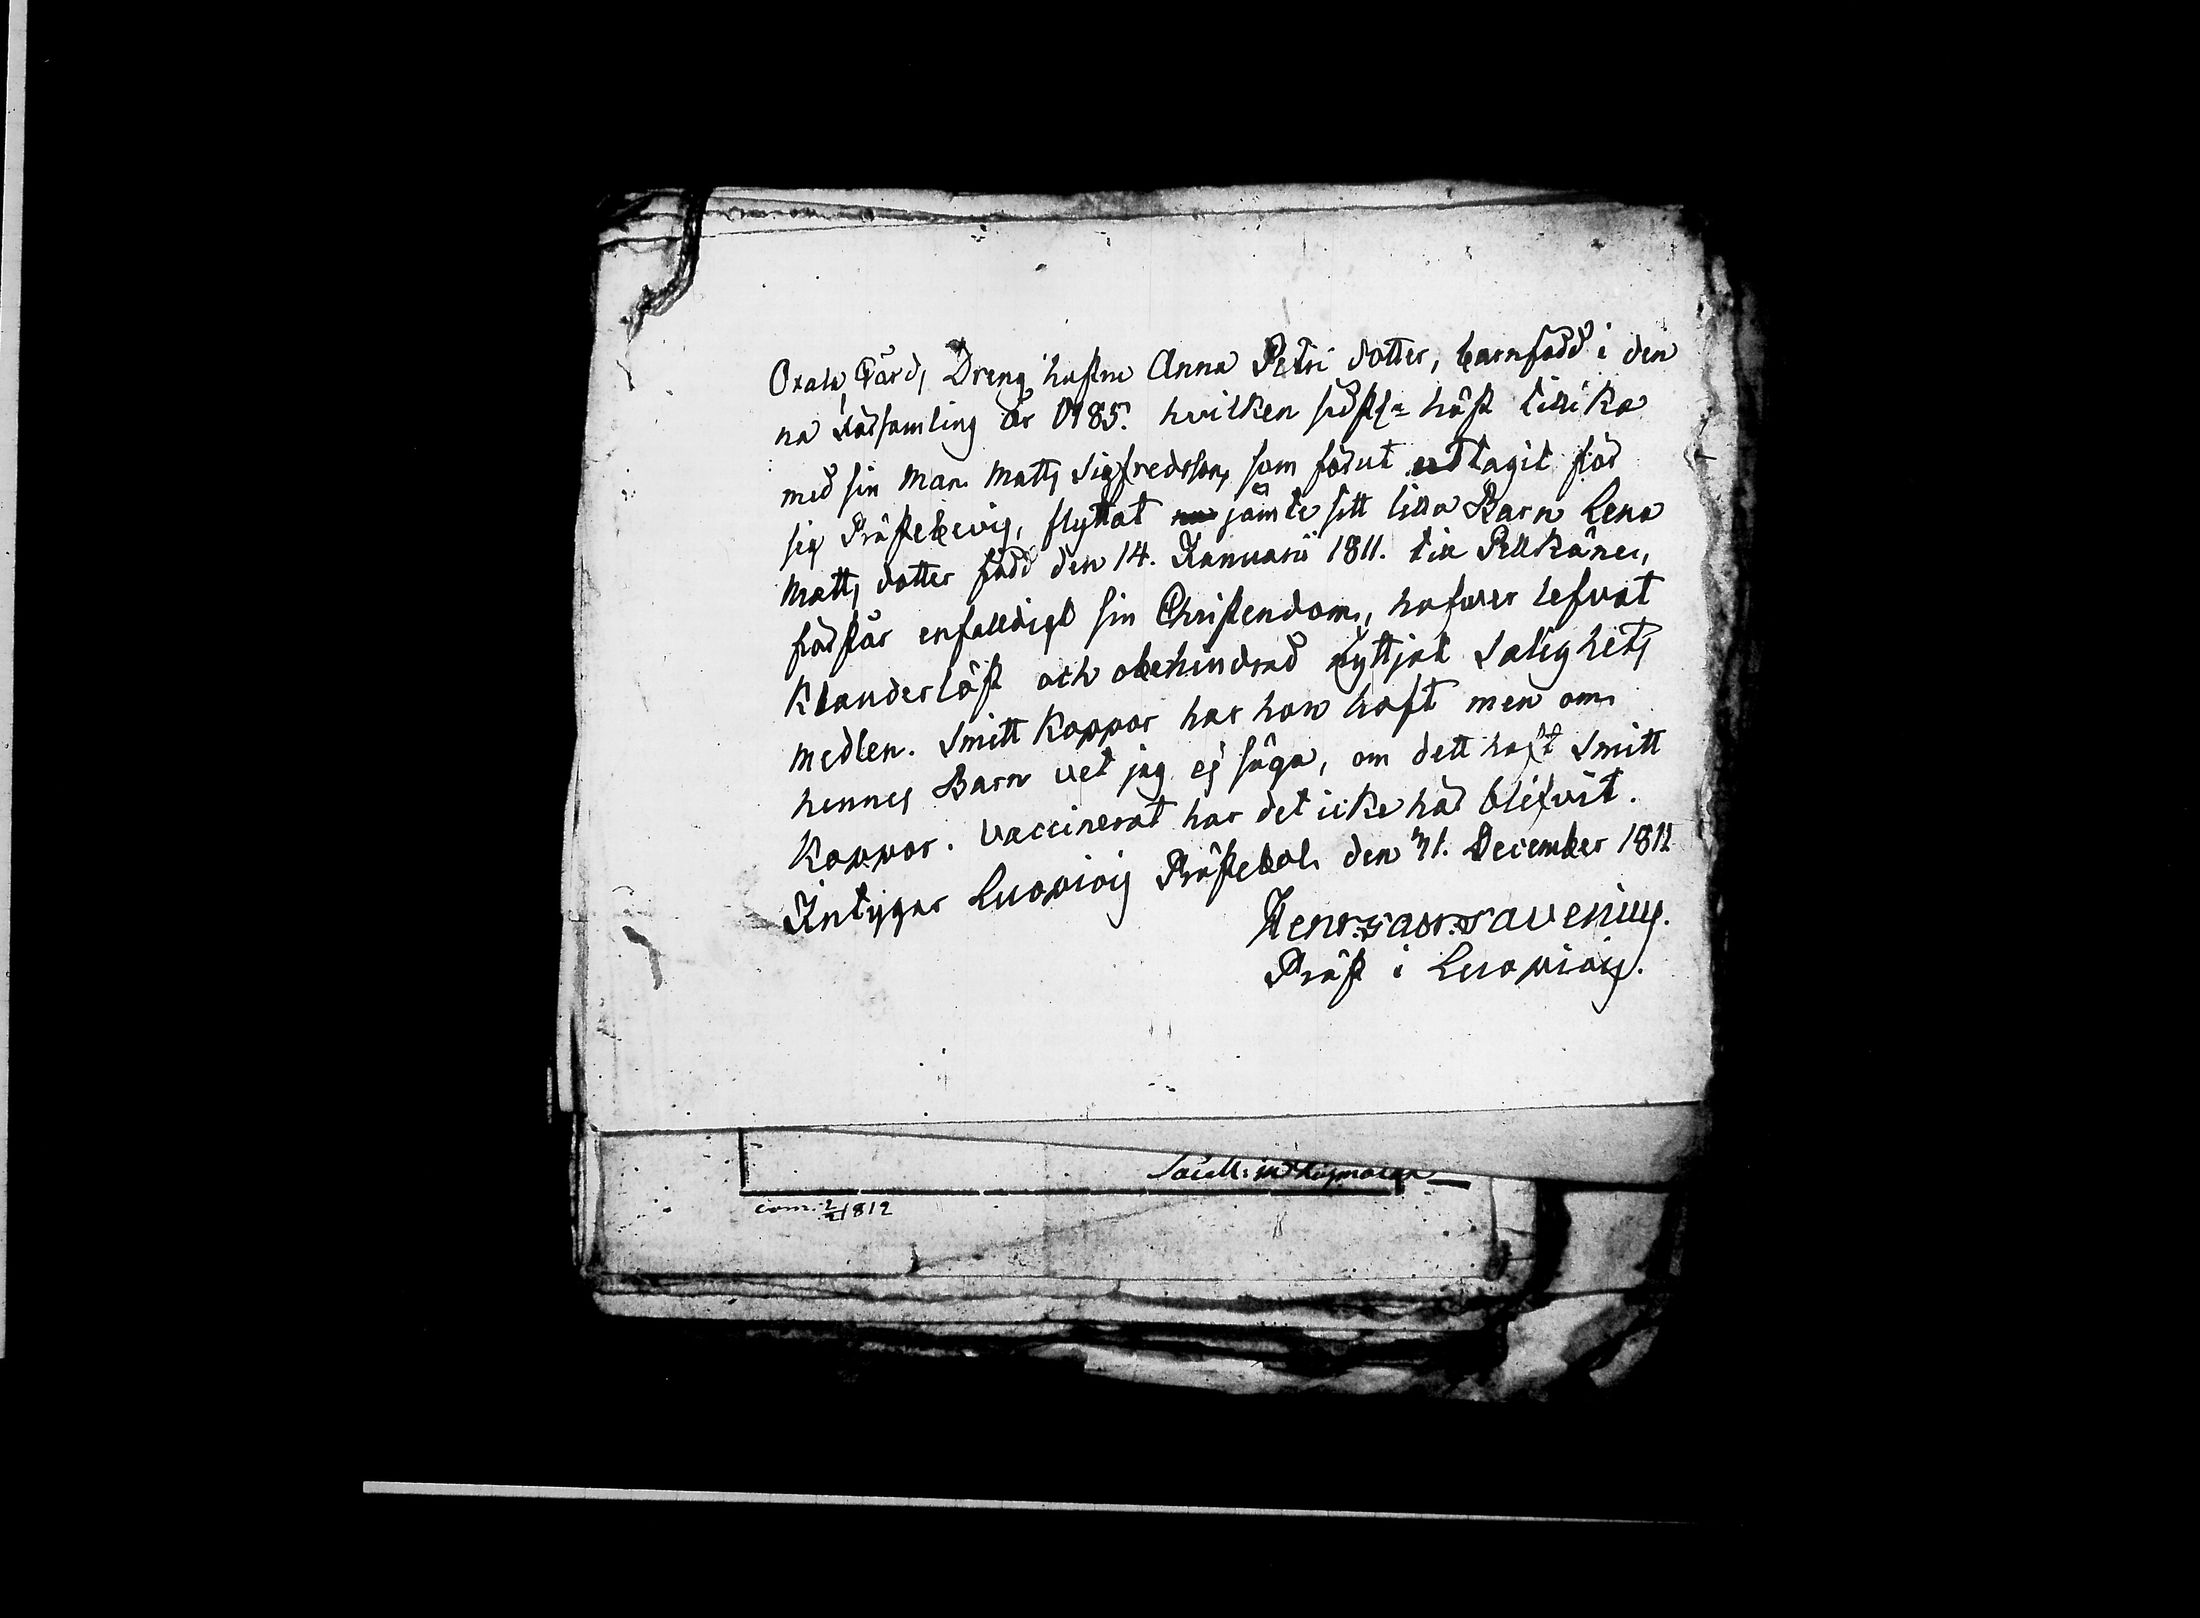 Oxala Gård, Dreng hustru Anna Petri dotter, barnfödd i den
na Församling år 1785. hvilken sidstl= höst tillika
med sin Man Matts Sigfredsson, som förut uttagit för
sig Prästebevis, flyttat jämte sitt lilla Barn Lena
Matts dotter född den 14. Januarii 1811. till Pelkäne,
förstår enfalldigt sin Christendom, hafwer lefvat
Klanderlöst och obehindrad nyttjat Salighets
medlen. Smitt Koppor har hon haft men om
hennes Barn vet jag ej säga, om dett haft Smitt
Koppor. Vaccinerat har det icke här blifvit.
Intygar Luopiois Prästebol den 31. December 1811
Henr. Gabr. Favenius.
Präst i Luopiois.
com. 2/2 1812